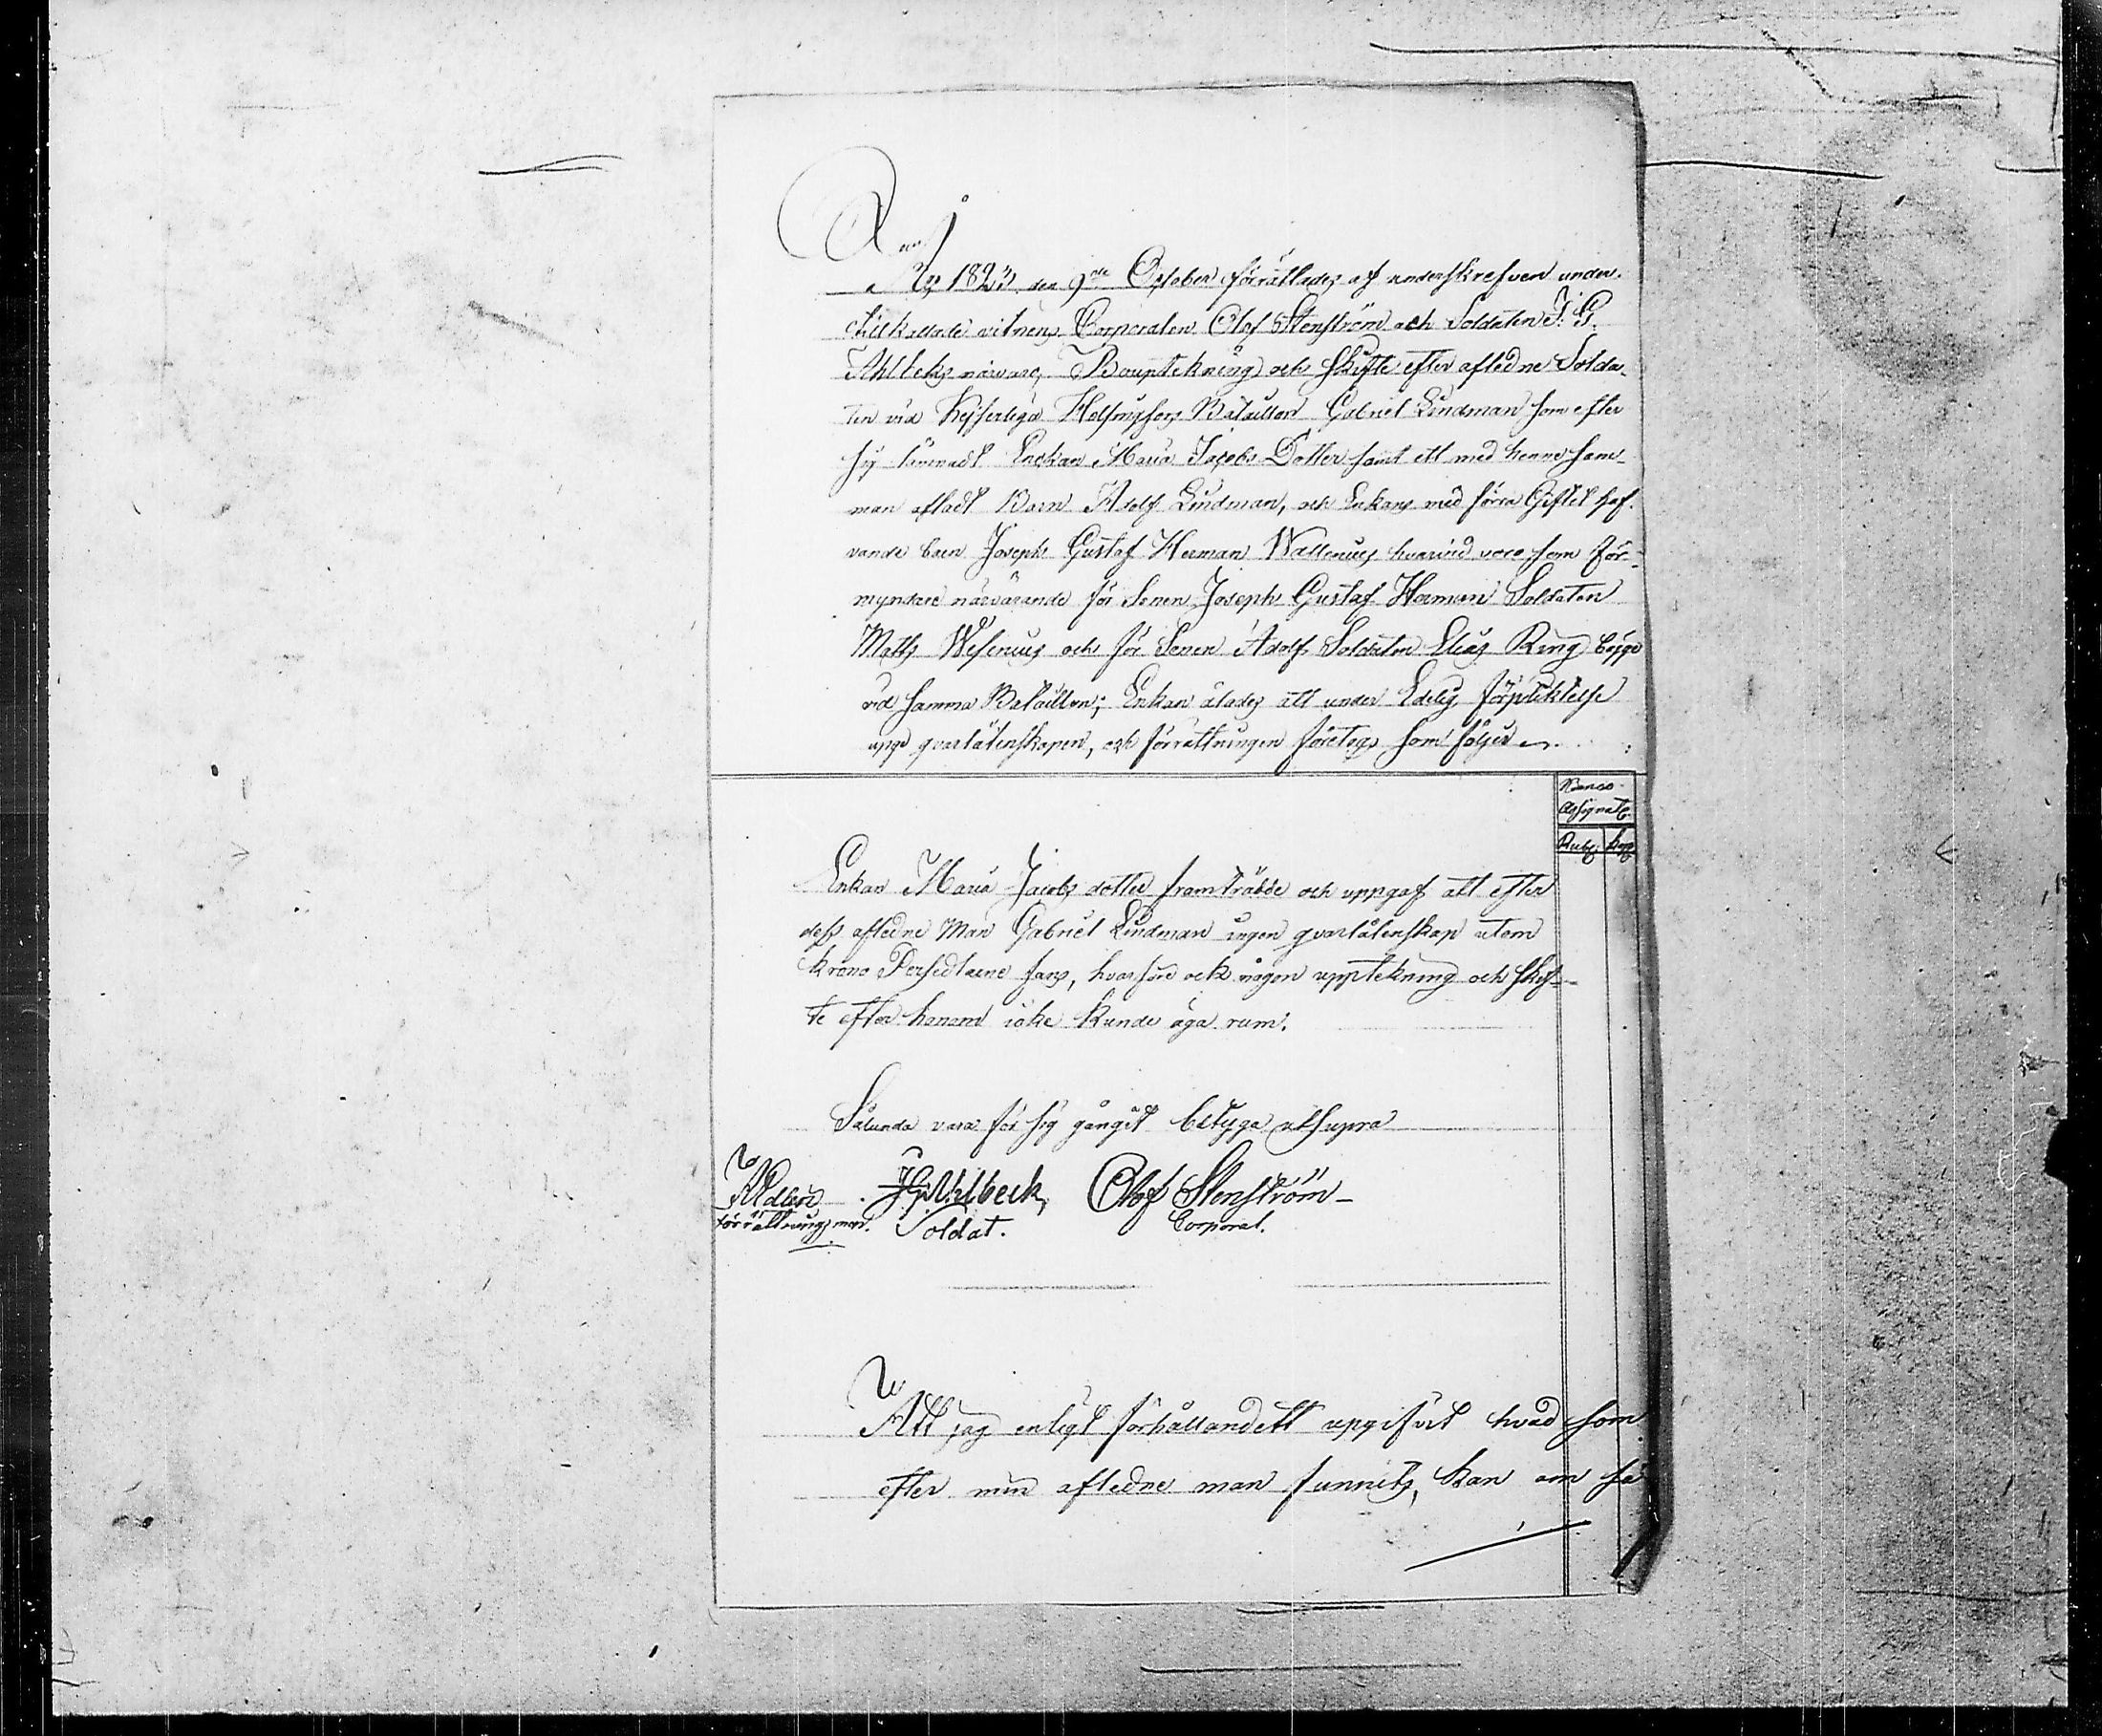 År 1823 den 9de October förrättades af underskrefven under
tillkallade vitnens Corporalen Olof Stenström och Soldaten J: G.
Ahlbeks närvaro, Bouptekning och skifte efter afledne Solda-
ten vid Kejserliga Helsingfors Bataillon Gabriel Lindman som efter
sig lämnadt Enckan Maria Jacobs Dotter samt ett med henne sam-
man afladt Barn Adolf Lindman, och Enkans med förra Giftet haf-
vande barn Joseph Gustaf Herman Wallenius, hvarvid voro som för-
myndare närvarande för Sonen Joseph Gustaf Herman Soldaten
Matts Wesenius och för Sonen Adolf Soldaten Elias Ring begge
vid samma Bataillon; Enkan ålades att under Edelig förpliktelse
upge qvarlåtenskapen, och förrättningen företogs som följer
Banco
Assignat.
Rub. Kop
Enkan Maria Jacobs dotter framträdde och uppgaf att efter
dess afledne Man Gabriel Lindman ingen qvarlåtenskap utom
Krono Persedlarne fans, hvarföre ock någon upptekning och skif-
te efter honom icke kunde äga rum.
Sålunda vara för sig gångit betyga ut supra
förrättnings man.
J G Ahlbeck, Olof Stenström
Soldat. Corporal.
Att jag enligt förhållandett uppgifvit hvad som
efter min afledne man funnits, kan om så